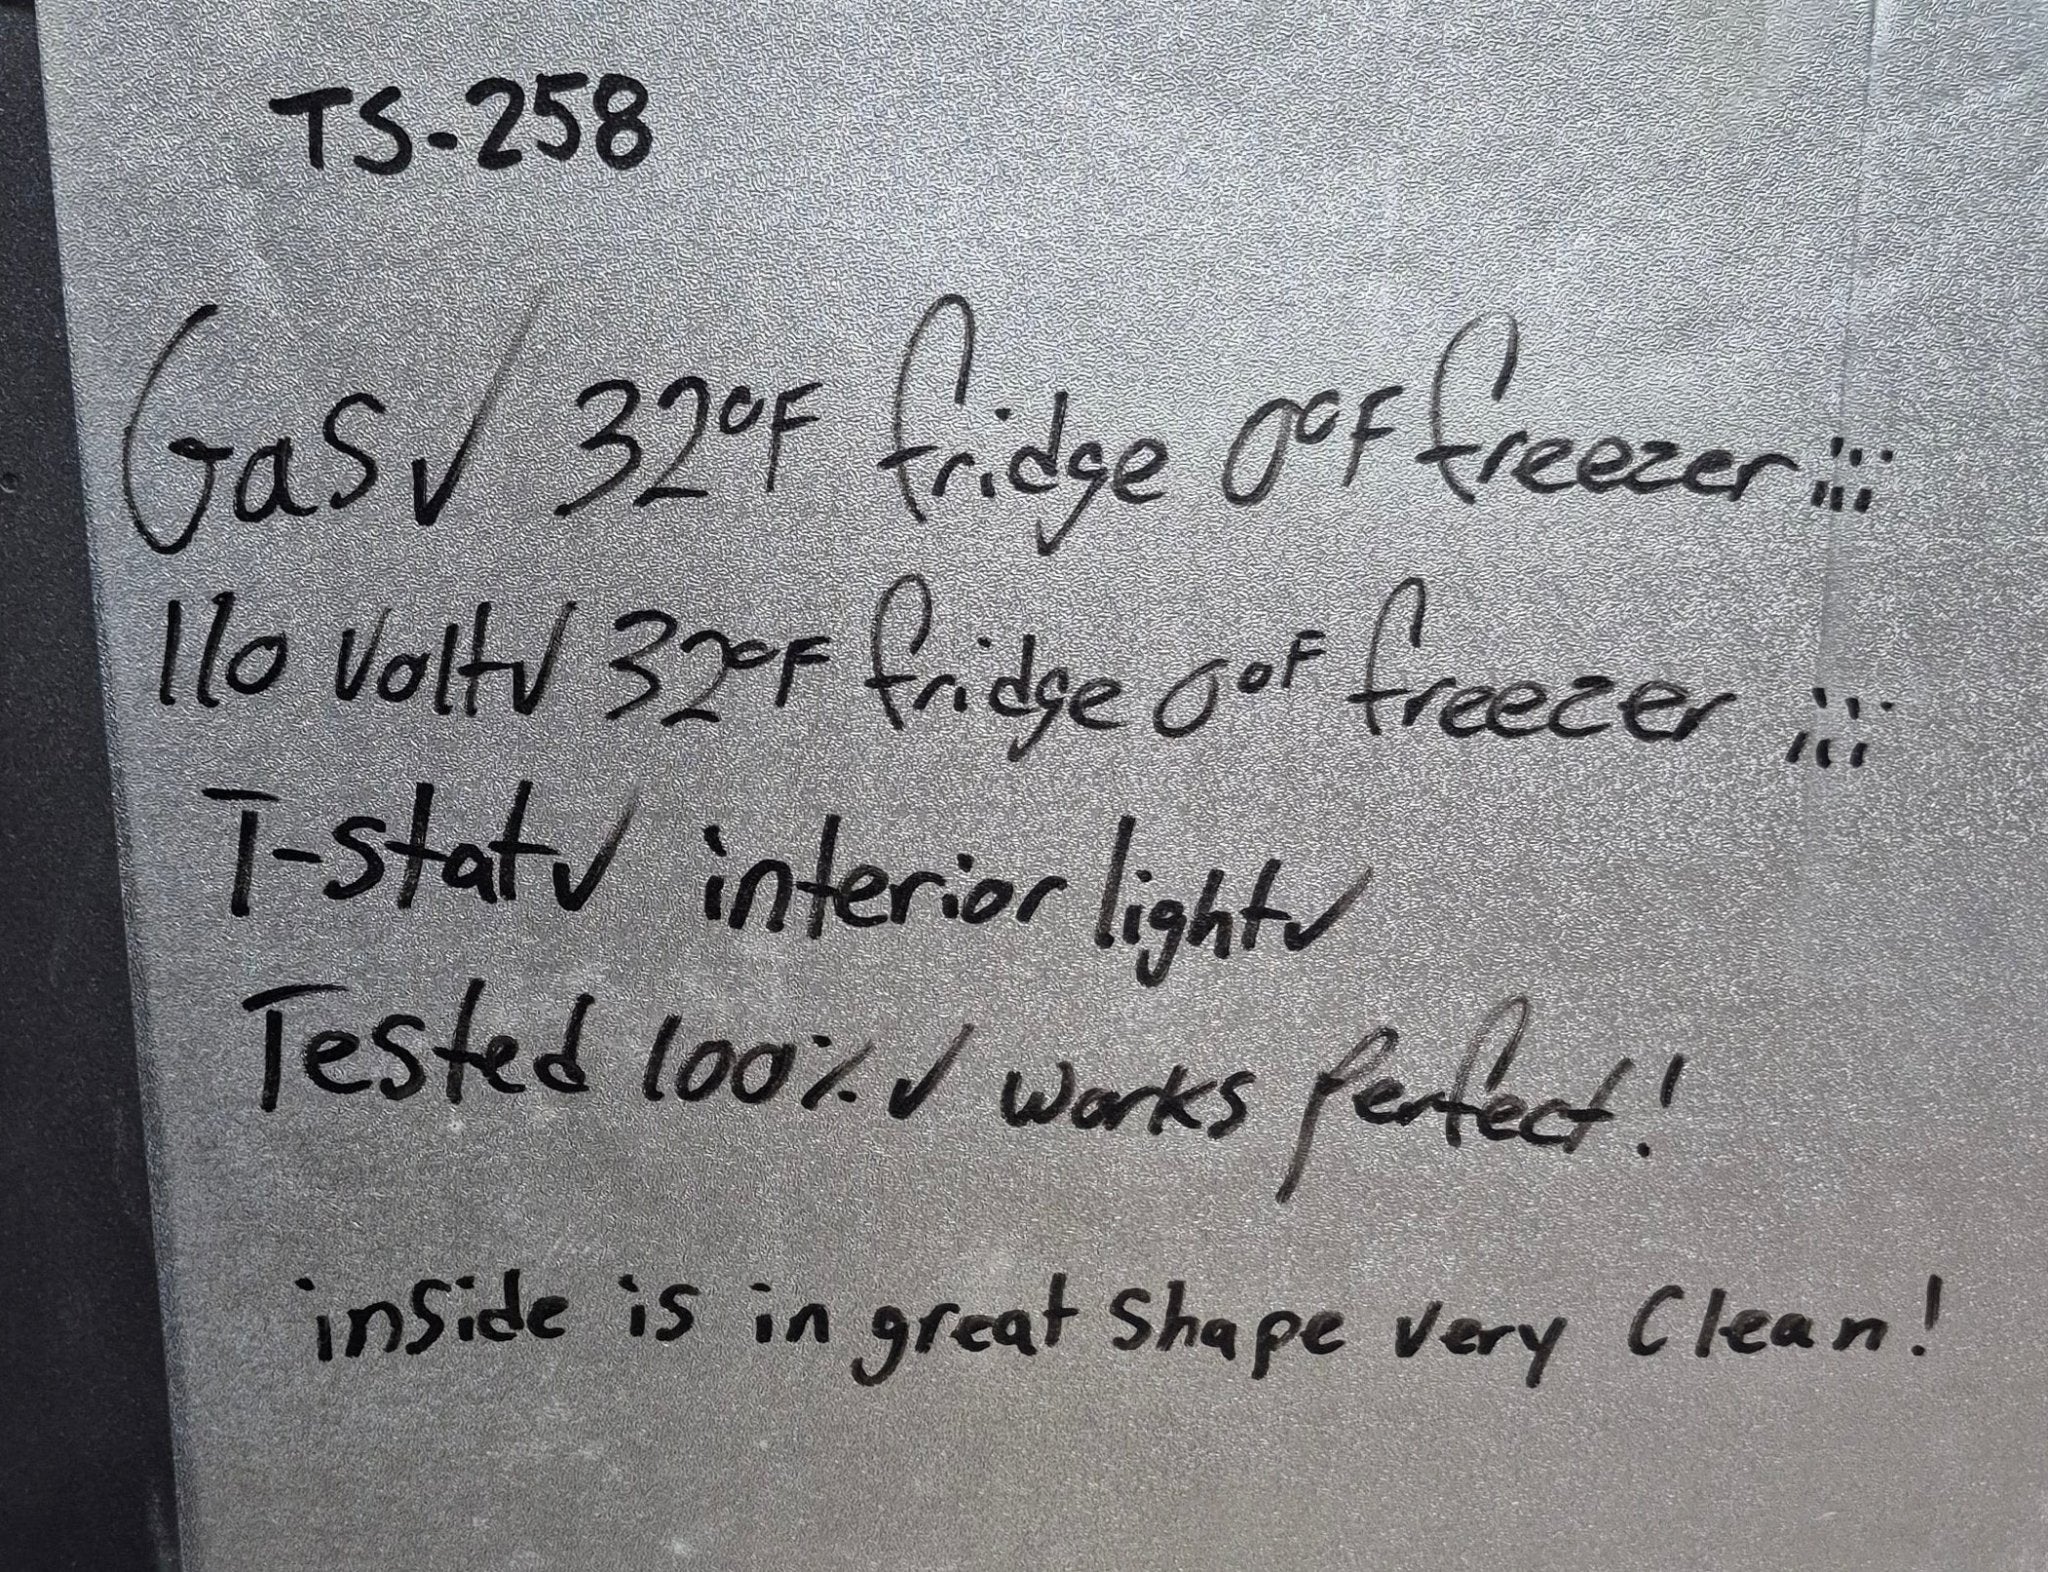 TS-258
Gas✓ 32°F fridge 0°F freezer
110 Volt✓ 32°F fridge 0°F freezer
T-stat✓ interior light✓
Tested 100%✓ works Perfect!
inside is in great Shape very Clean!